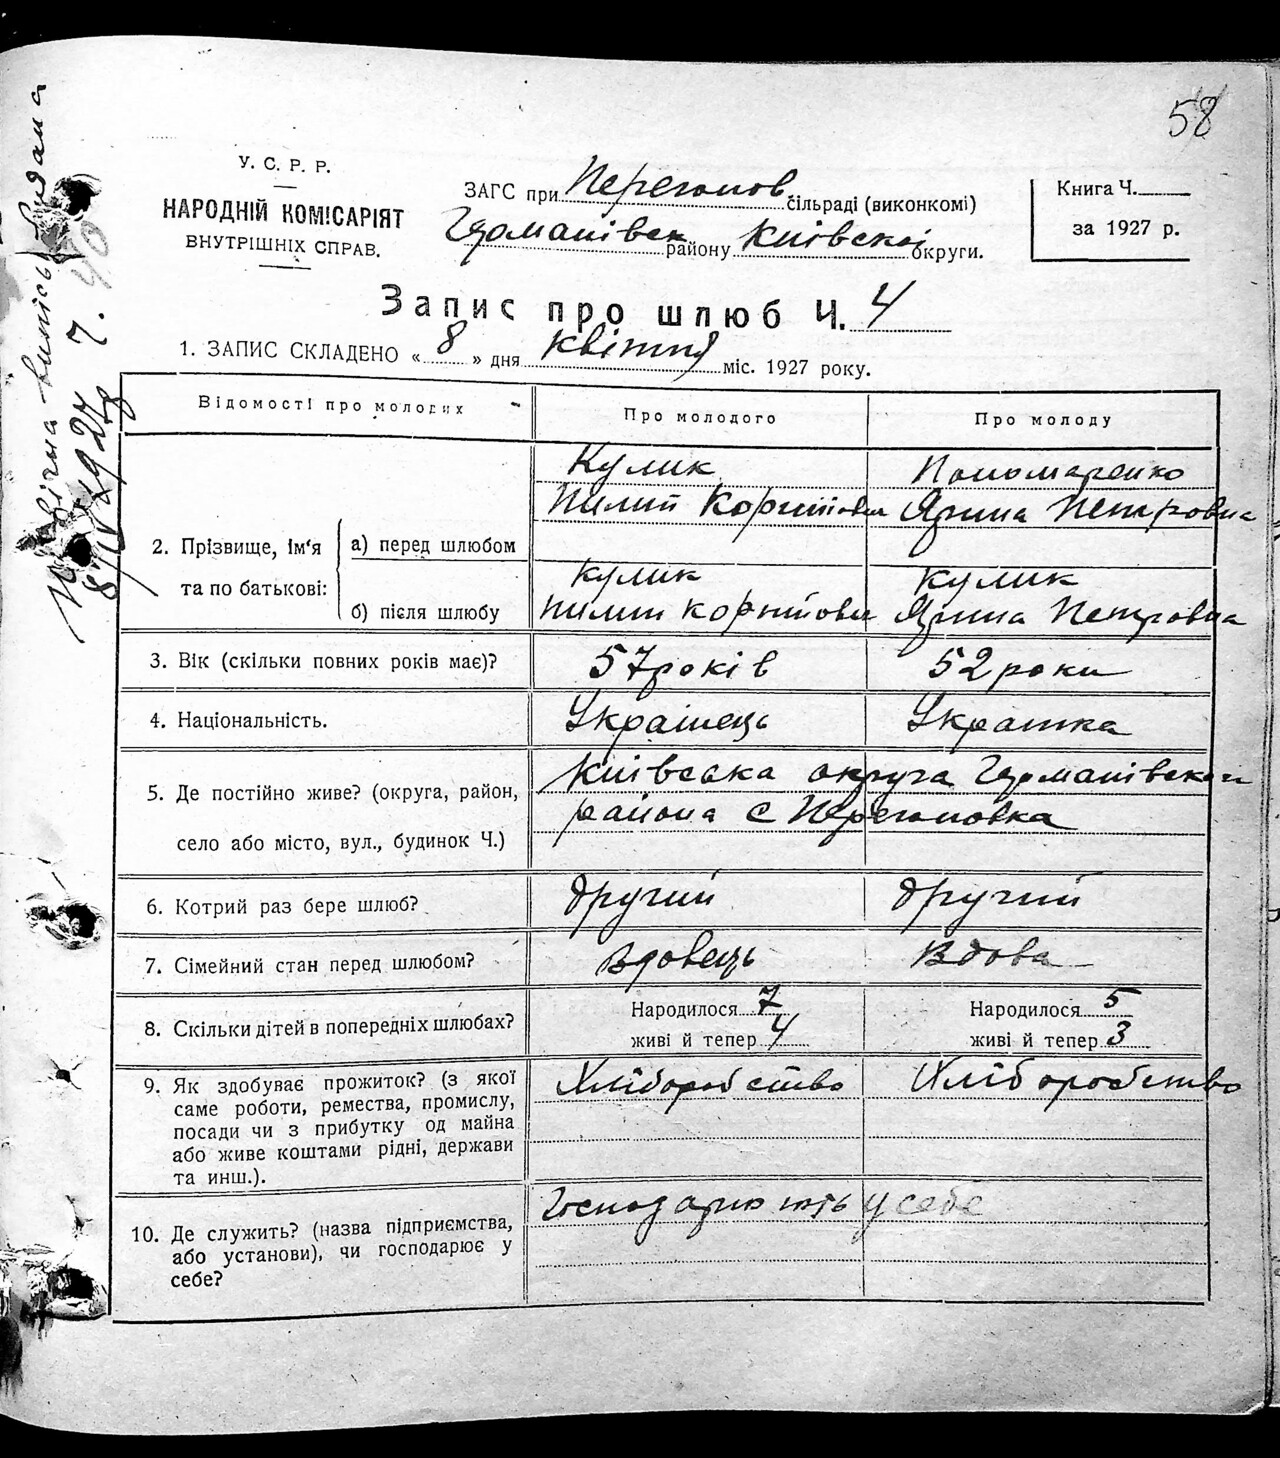 58
У. С. Р. Р.
НАРОДНІЙ КОМІСАРІЯТ
ВНУТРІШНІХ СПРАВ.
ЗАГС при Перегонов. сільраді (виконкомі)
Германівск району Київскої округи.
Книга Ч.
за 1927 р.
Запис про шлюб Ч. 4
1. ЗАПИС СКЛАДЕНО « 8 » дня квітня міс. 1927 року.
Відомості про молодих
Про молодого
Про молоду
2. Прізвище, ім‘я та по батькові:
а) перед шлюбом
Кулик
Пилип
Пономаренко
Ярина Петровна
б) після шлюбу
Кулик
Пилип
Кулик
Ярина Петровна
3. Вік (скільки повних років має)?
57 років
52 роки
4. Національність.
Українець
Українка
5. Де постійно живе? (округа, район,
село або місто, вул., будинок Ч.)
Київська округа Германівского
района с Перегоновка
6. Котрий раз бере шлюб?
другий
другий
7. Сімейний стан перед шлюбом?
вдовець
Вдова
8. Скільки дітей в попередніх шлюбах?
Народилося 7
живі й тепер 4
Народилося 5
живі й тепер 3
9. Як здобуває прожиток? (з якої
саме роботи, ремества, промислу,
посади чи з прибутку од майна
або живе коштами рідні, держави
та инш.).
Хліборобство
Хліборобство
10. Де служить? (назва підприємства,
або установи), чи господарює у
себе?
Господарюють у себе
видана